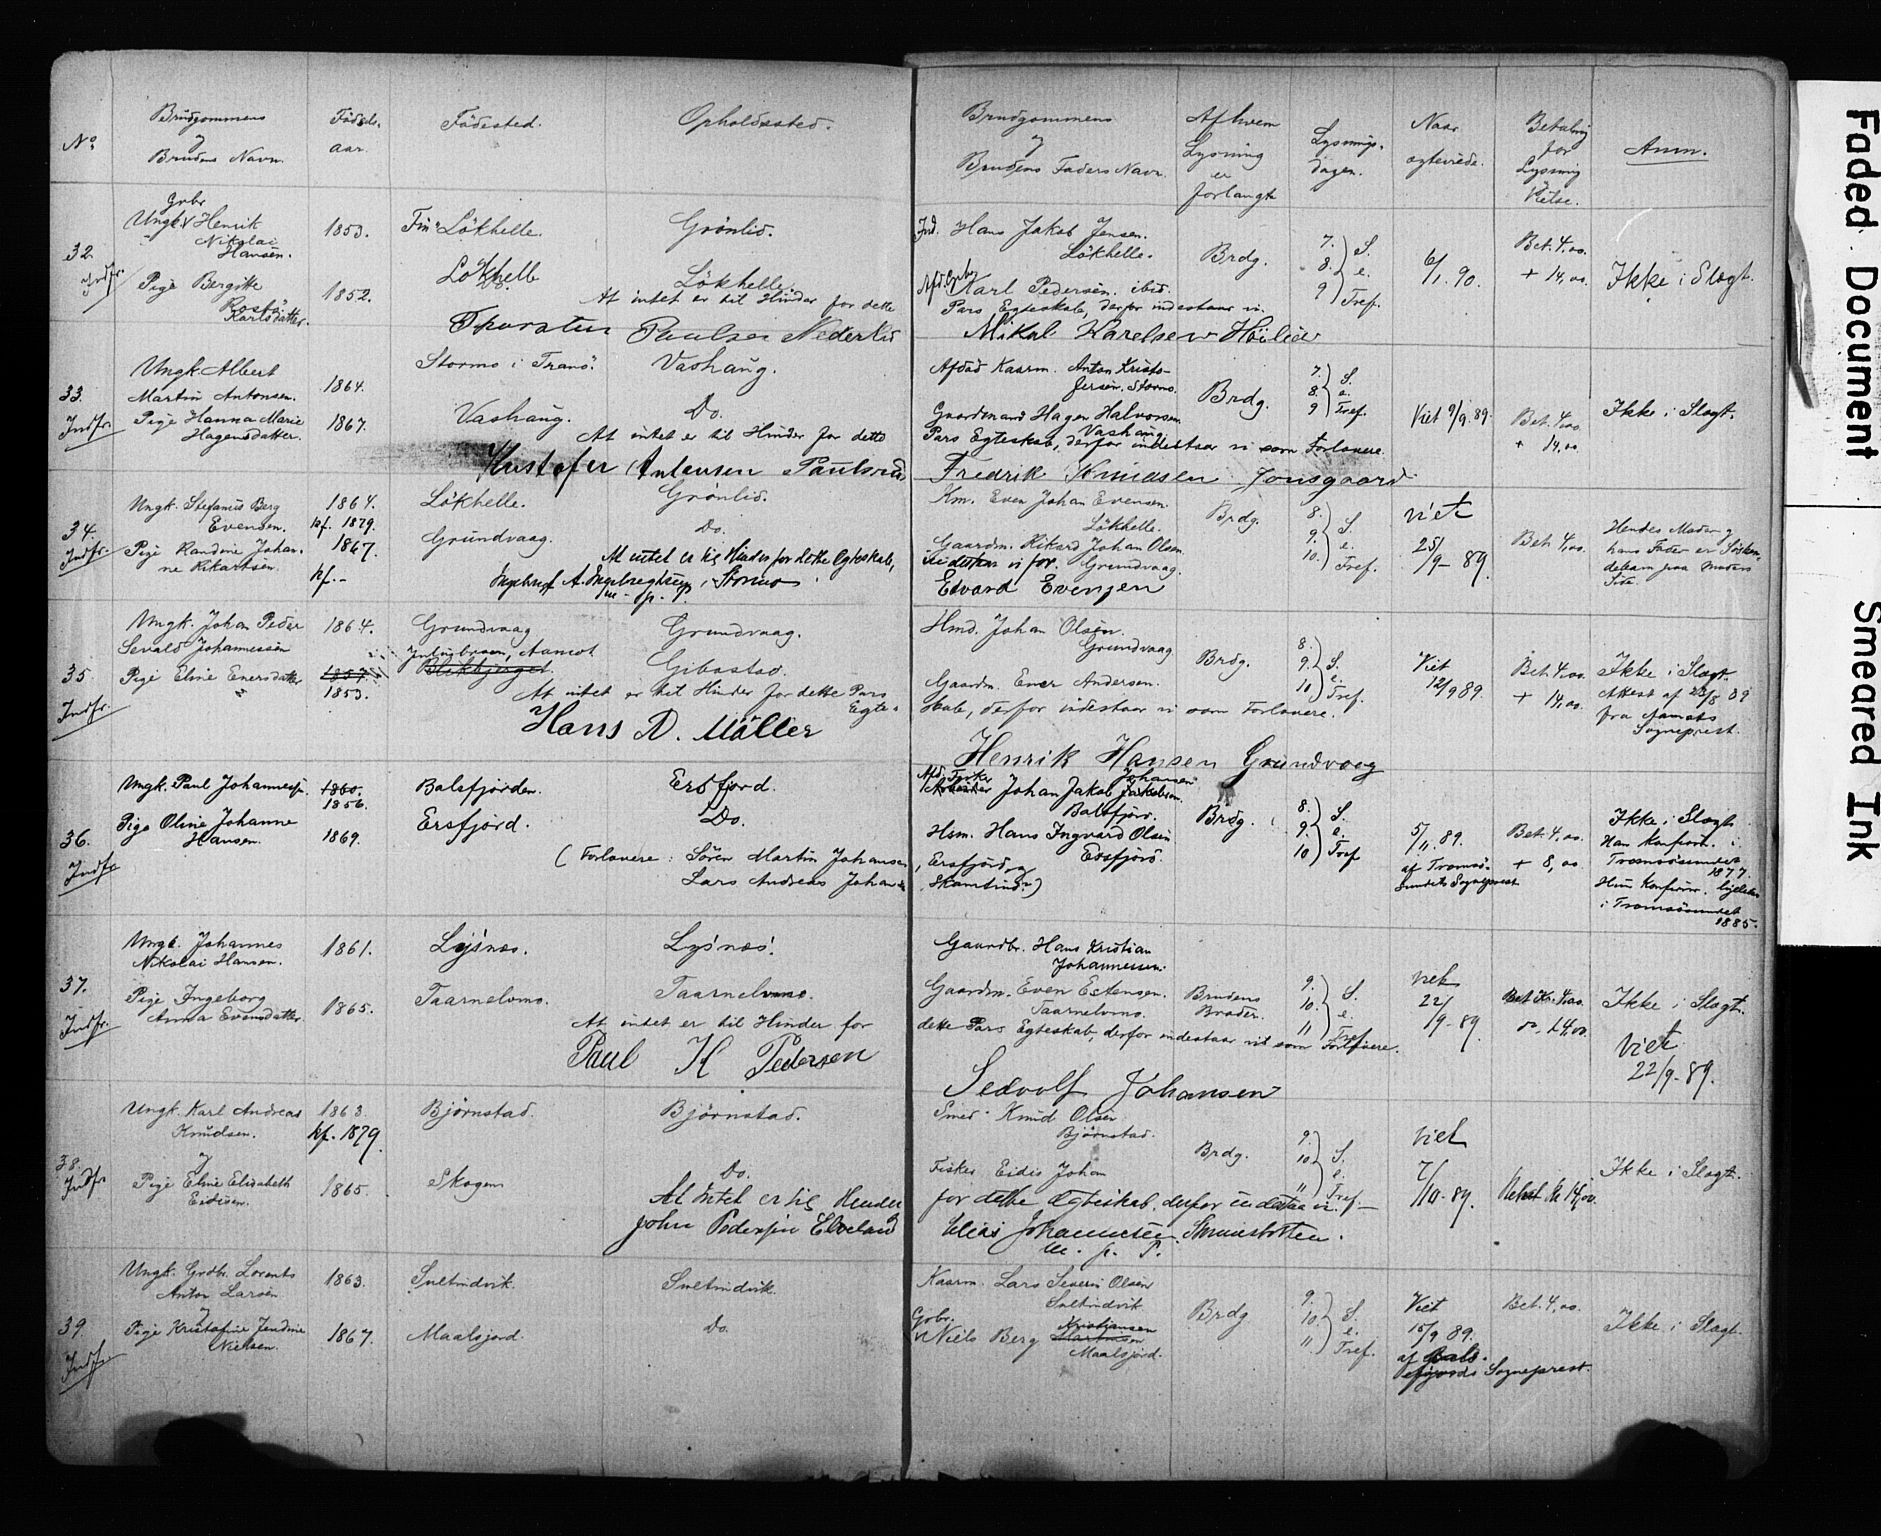 No
Brudgommens
og
Brudens Navn.
Fødsels-
aar.
Fødested.
Opholdssted.
Brudgommens
og
Brudens Faders Navn.
Af hvem
Lysning
er
forlangt
Lysnings-
dagen.
Naar
egteviede.
Betaling
for
Lysning
&
Vielse.
Anm.
32.
Indfr.
Gbr
Ungk. Henrik
Nikolai
Hansen.
1853.
Løkhelle.
Grönlid.
Ind. Hans Jakob Jensen.
Løkhelle.
Brdg.
7. S.
8. e.
9 Tref.
6/1 90.
Bet. 4,00.
+ 14,00
Ikke i Slægt.
Pige Bergitte
Karlsdatter.
1852.
Løkhelle
Løkhelle.
Karl Pedersen. ibid.
At intet er til Hinder for dette
Pars Egteskab, derfor indestaar vi.
Thorsten Paulsen Nederlid
Mikal Karelsen Høilid
33.
Indfr.
Ungk. Albert
Martin Antonsen.
1864.
Stormo i Tranö.
Vashaug.
Afdød Kaarm. Anton Kristo-
fersen. Stormo.
Brdg.
7. S.
8. e.
9 Tref.
Viet 9/9. 89.
Bet. 4,00
+ 14,00
Ikke i Slægt.
Pige Hanna Marie
Hagensdatter.
1867.
Vashaug.
Do.
Gaardmand Hagen Halvorsen
Vashaug
At intet er til Hinder for dette
Pars Egteskab, derfor indestaar vi som Forlovere.
Kristofer Antonsen Paulsrud
Fredrik Knudsen Jonsgaard
34.
Indfr.
Ungk. Stefanus Berg
Evensen.
1864.
kf. 1879.
Løkhelle.
Grönlid.
Km. Even Johan Evensen.
Løkhelle.
Brdg.
8. S.
9. e.
10. Tref.
viet
25/9- 89.
Bet. 4,00.
Hendes Moder og
hans Fader er Søsken-
debarn paa Moders
Side
Pige Randine Johan-
ne Rikartsen.
1867.
kf. --
Grundvaag.
Do.
Gaardm. Rikard Johan Olsen
Grundvaag.
At intet er til Hinder for dette Egteskab,
indestaa vi for.
Ingebrigt A. Ingebregtsen, Stormo
m. f. p.
Edvard Evensen
35.
Indfr.
Ungk. Johan Peder
Sevald Johannessen
1864.
Grundvaag
Grundvaag.
Hmd. Johan Olsen.
Grundvaag
Brdg.
8.
9. S.
10 e. Tref.
Viet
12/9 89.
Bet. 4,00
+ 14,00.
Ikke i Slægt.
Attest af 23/8 89
fra Aamots
Sogneprest.
Pige Eline Enersdatter
1857.
1853.
Aamot
Blikbjerget.
Gibostad.
Gaardm. Ener Andersen.
At intet er til Hinder for dette Pars
Egte-
skab, derfor indestaar vi som Forlovere.
Hans A. Møller
Henrik Hansen Grundvaag
36.
Indfr.
Ungk. Paul Johannessen.
1860.
1856.
Balsfjorden.
Ersfjord.
Afd. Fisker
Arbeider Johan Jakob Jakobsen.
Johansen
Balsfjord.
Brdg.
8. S.
9. e.
10 Tref
5/11. 89.
af Tromsö-
sundets Sogneprest
Bet. 4,00.
+ 8,00.
Ikke i Slægt
Han konfirm. i
Tromsösundet
1877.
Hun konfirm. ligeledes
i Tromsösundet
1885.
Pige Oline Johanne
Hansen.
1869.
Ersfjord.
Do.
Hsm. Hans Ingvard Olsen
Ersfjord.
(Forlovere: Sören Martin Johansen
, Ersfjord og
Lars Andreas Johansen
Skamtind.)
37.
Indfr.
Ungk. Johannes
Nikolai Hansen.
1861.
Lysnæs.
Lysnæs.
Gaardbr. Hans Kristian
Johannessen.
Brudens
Broder.
9. S.
10. e.
11 Tref.
viet
22/9- 89
Bet Kr. 4,00
do. 14,00.
Ikke i Slægt.
viet
22/9.-89.
Pige Ingeborg
Anna Evensdatter.
1865.
Taarnelvmo.
Taarnelvmo.
Gaardm. Even Estensen.
Taarnelvmo.
At intet er til Hinder for
dette Pars Egteskab, derfor indestaar vi som Forlovere.
Paul H Pedersen
Sedvolf Johansen
38.
Indfr
Ungk. Karl Andreas
Knudsen.
1863.
kf. 1879.
Björnstad.
Björnstad.
Smed Knud Olsen
Björnstad.
Brdg.
9. S.
10. e.
11 Tref
viet
6/10- 89.
Betalt Kr 14,00.
Ikke i Slægt.
og
Pige Eline Elisabeth
Eidisen.
1865.
Skogen
Do.
Fisker Eidis Johan
At Intet er til Hinder
for dette Egteskab, derfor indestaa vi. f-
John Pedersen Elveland
Elias Johannesen
m. f. P.
39.
Indfr.
Ungk. Grdbr. Lorents
Anton Larsen
1863.
Sultindvik.
Sultindvik.
Kaarm. Lars Severin Olsen
Sultindvik
Brdg
9. S.
10. e.
11. Tref.
Viet
15/9 89.
af Bals-
fjords Sogneprest.
Bet. 4,00.
Ikke i Slægt.
og
Pige Kristofine Jendine
Nielsen.
1867.
Maalsjord.
Do.
Grbr.
Niels Berg Kristiansen
Martinsen
Maalsjord.
Faded Document
Smeared Ink